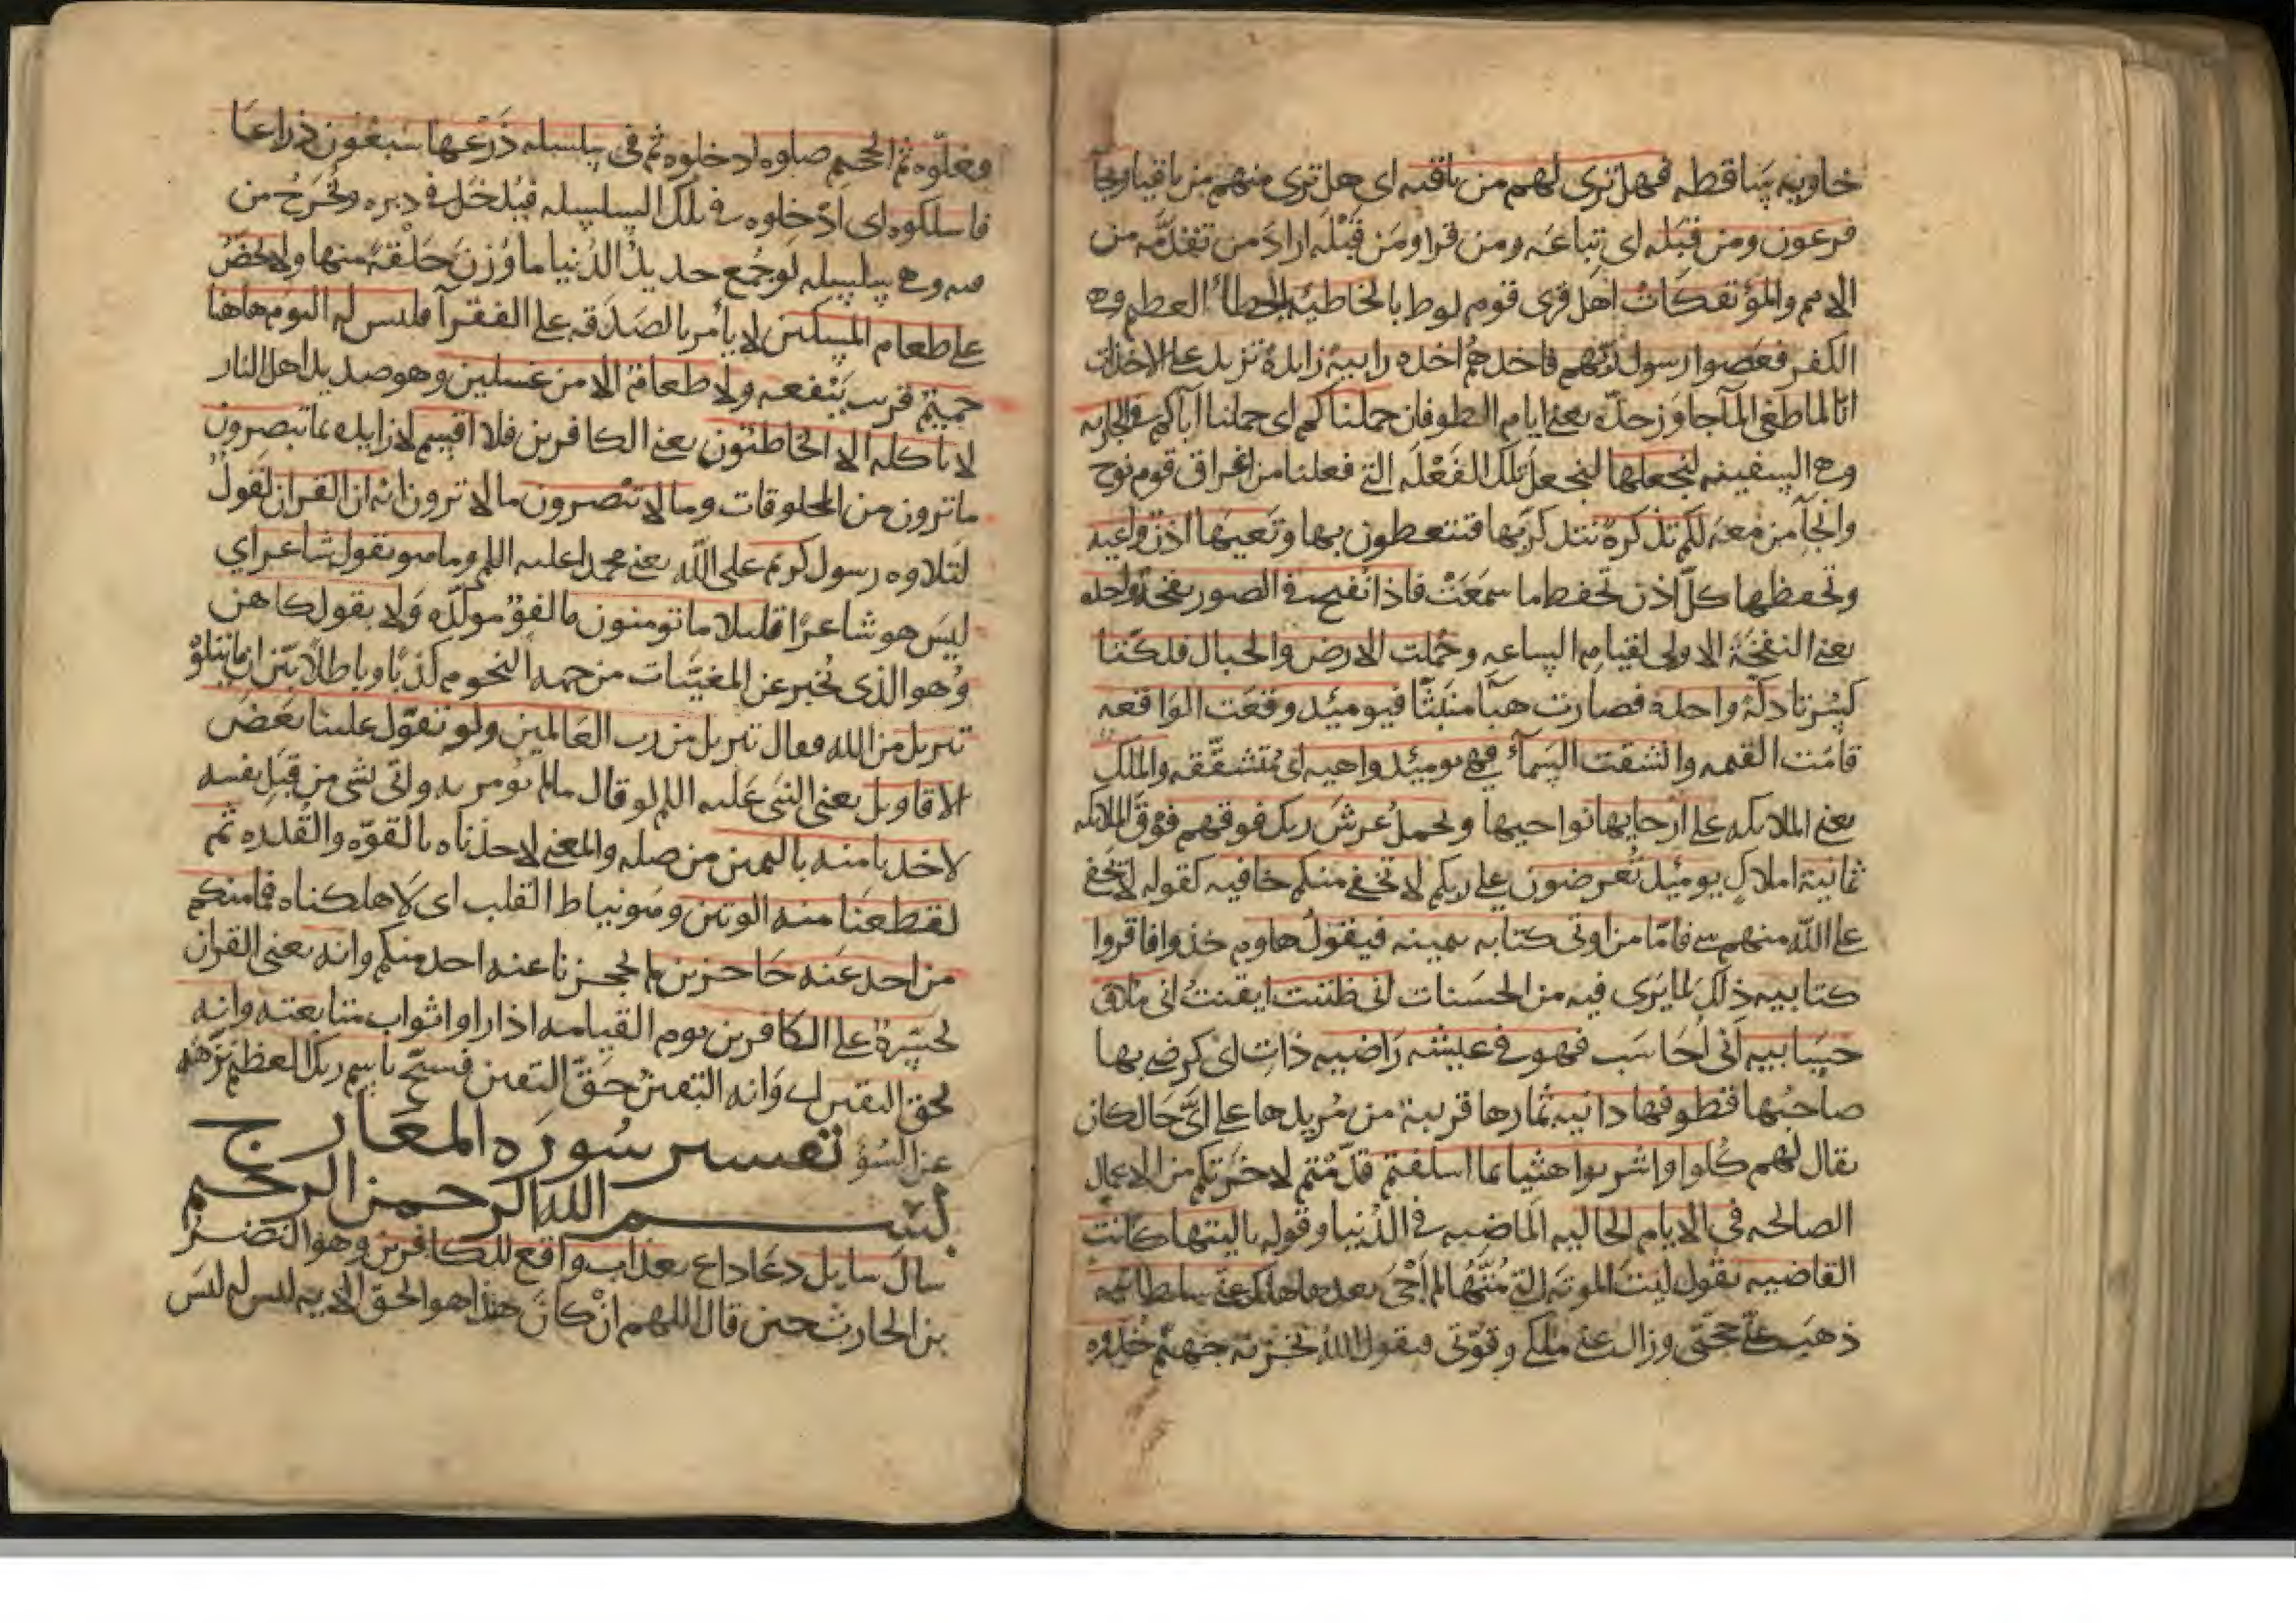 خاويه ساقطه فهل ترى لهم من باقيه اى هل ترى منهم من باقيا وجآ
فرعون ومن قبله اى تباعه ومن قرا ومن قبله اراد من تقدمه من
الامم والمؤتفكات اهل قرى قوم لوط بالخاطئه بالخطا العظيم وهو
الكفر فعصوا رسول ربهم فاخذهم اخذه رابية زايدة تزيد على الاخذات
انا لما طغى المآ جاوز حده يعنى ايام الطوفان حملناكم اى حملنا اباكم فى الجاريه
وهى السفينه لنجعلها لنجعل تلك الفعله التى فعلنا من اغراق قوم نوح
وانجآ من معه لكم تذكرة تتذكر بها فتتعظون بها وتعيها اذن واعيه
وتحفظها كل اذن تحفظ ما سمعت فاذا نفخ فى الصور نفخة واحده
يعنى النفخة الاولى لقيام الساعه وحملت الارض والجبال فدكتا
كسرتا دكة واحدة فصارت هبآ منبثا فيومئذ وقعت الواقعه
قامت القيمه وانشقت السمآء فهى يومئذ واهيه اى متشققه والملك
يعنى الملايكه على ارجايها نواحيها ويحمل عرش ربك فوقهم فوق الملايكه
ثمانية املاك يومئذ تعرضون على ربكم لا تخفى منكم خافيه كقوله لا يخفى
على الله منهم شى فاما من اوتى كتابه بيمينه فيقول هاوم خذوا فاقروا
كتابيه ذلك لما يرى فيه من الحسنات انى ظننت ايقنت انى ملاق
حسابيه انى احاسب فهو فى عيشه راضيه ذات اى كرضى بها
صاحبها قطوفها دانيه ثمارها قريبة من مريدها على اى حال كان
يقال لهم كلوا واشربوا هنيا بما اسلفتم قدمتم لاخرتكم من الاعمال
الصالحه فى الايام الخاليه الماضيه فى الدنيا وقوله ياليتها كانت
القاضيه يقول ليت الموته التى متها لم احى بعدها هلك عنى سلطانيه
ذهبت عنى حجتى وزال عنى ملكى وقوتى فيقول الله لخزنه جهنم خذوه
فغلوه ثم الجحيم صلوه ادخلوه ثم فى سلسله ذرعها سبعون ذراعا
فاسلكوه اى ادخلوه فى تلك السلسله فتدخل فى دبره وتخرج من
فيه وهى سلسله لو جمع حديد الدنيا ما وزن حلقة منها ولا يحض
على طعام المسكين لا يأمر بالصدقه على الفقرآ فليس له اليوم هاهنا
حميم قريب ينفعه ولا طعام الا من غسلين وهو صديد اهل النار
لا ياكله الا الخاطئون يعنى الكافرين فلا اقسم لا زايده بما تبصرون
ما ترون من المخلوقات وما لا تبصرون ما لا ترون انه ان القران لقول
لتلاوه رسول كريم على الله يعنى محمدا عليه اللم وما هو بقول شاعر اى
ليس هو شاعرا قليلا ما تومنون ما لغو موكده ولا بقول كاهن
وهو الذى يخبر عن المغيبات من جهه النجوم كذبا وباطلا بين ان ما يتلو
تنزيل من الله فقال تنزيل من رب العالمين ولو تقول علينا بعض
الاقاويل يعنى النبى عليه اللم لو قال ما لم يومر به واتى بشى من قبل نفسه
لاخذنا منه باليمين من صله والمعنى لاخذناه بالقوه والقدره ثم
لقطعنا منه الوتين وهو نياط القلب اى لاهلكناه فما منكم
من احد عنه حاجزين لم يحجزنا عنه احد منكم وانه يعنى القران
لحسرة على الكافرين يوم القيامه اذا راوا ثواب متابعته وانه
لحق اليقين اى وانه اليقين حق اليقين فسبح باسم ربك العظيم نزهه
عن السؤ تفسير سوره المعارج
بسم الله الرحمن الرحيم
سال سايل دعا داع بعذاب واقع للكافرين وهو النضر
بن الحارث حين قال اللهم ان كان هذا هو الحق الايه ليس له ليس